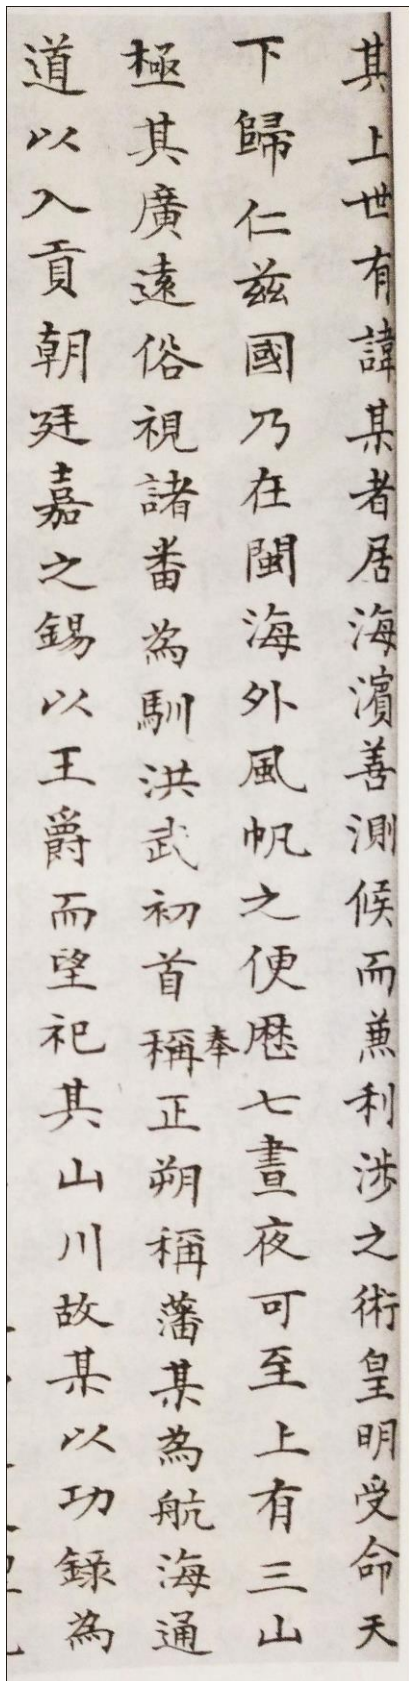 其上世有諱某者居海濱善測候而兼利涉之術皇明受命天
下歸仁兹國乃在閩海外風帆之便歴七晝夜可至上有三山
極其廣遠俗視諸番為馴洪武初首稱奉正朔稱藩某為航海通
道以入貢朝廷嘉之錫以王爵而望祀其山川故某以功錄為